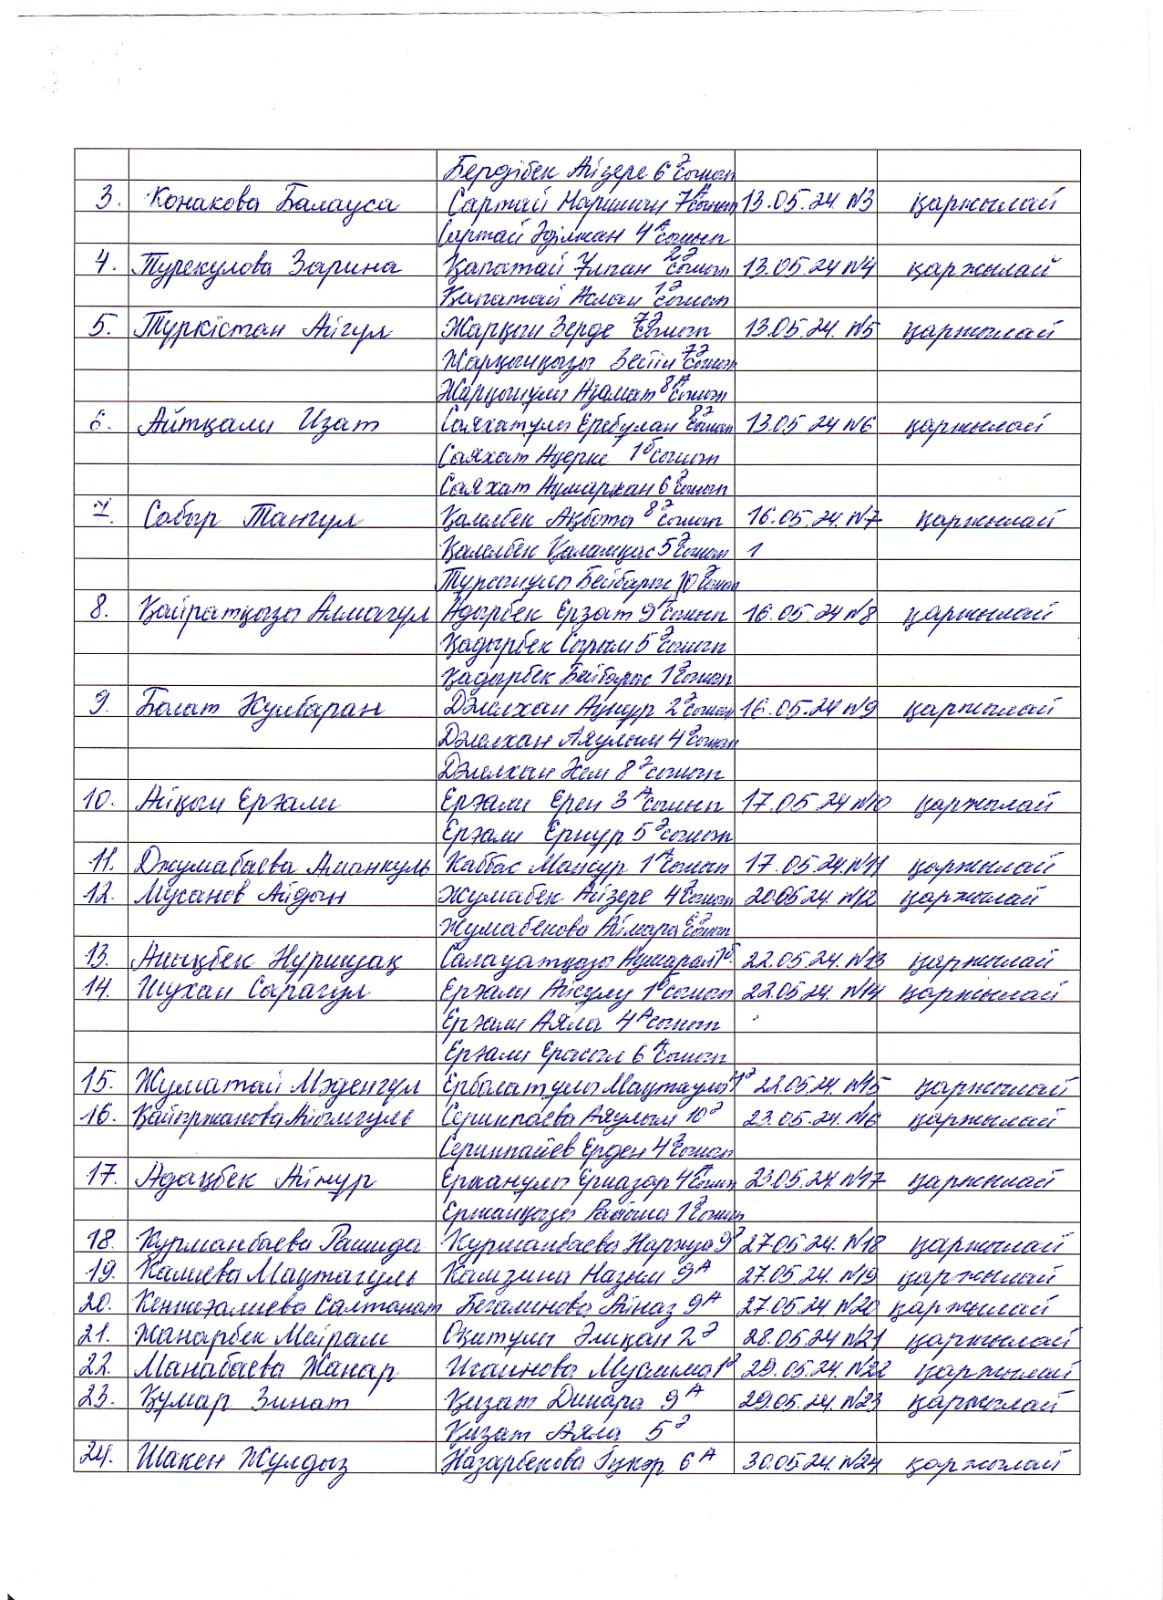 Бердібек Айзере 6 ә сынып
3. Конакова Балауса Сартай Наршың 7 А сынып 13.05.24. №3 қаржылай
Сартай Әділжан 4 А сынып
4. Турекулова Зарина Қапатай Ұлпан 2 ә сынып 13.05.24 №4 қаржылай
Қапатай Аслан 1 ә сынып
5. Түркістан Айгүл Жарқын Зерде 7 ә сынып 13.05.24. №5 қаржылай
Жарқынқызы 7 ә сынып
Жарқынұлы Азамат 8 А сынып
6. Айтқали Изат Саяхатұлы Еребулан 8 ә сынып 13.05 24 №6 қаржылай
Саяхат Ацерке 1 б сынып
Саяхат Аумархан 6 ә сынып
7. Сабыр Таңгүл Қалелбек Ақбота 8 ә сынып 16.05.24. №7 қаржылай
Қалелбек Қаламқас 5 ә сынып 1
Тұрсынұлы Бейбарыс 10 ә сынып
8. Қайратқызы Алмагүл Адырбек Ерзат 9 сынып 16.05 24 №8 қаржылай
Қадырбек Сырым 5 ә сынып
Қадырбек Бейбарыс 1 ә сынып
9. Болат Күлбаран Дәлелхан Ақнұр 2 ә сынып 16.05.24 №9 қаржылай
Дәлелхан Аяулым 4 ә сынып
Дәлелхан 8 ә сынып
10. Айқын Ерғали Ерғали Ерен 3 А сынып 17.05 24 №10 қаржылай
Ерғали Ернұр 5 ә сынып
11. Джумабаева Аманкуль Каббас Мансұр 1 А сынып 17.05 24. №11 қаржылай
12. Мусанов Айдын Жұмабек Айзере 4 ә сынып 20.05 24. №12 қаржылай
Жумабекова Айлара 6 ә сынып
13. Анықбек Нұршуақ Салауатқызы Аумарал 1 б. 22.05.24. №13 қаржылай
14. Шухан Сарагүл Ерғали Айсұлу 1 ә сынып 22.05 24. №14 қаржылай
Ерғали Аяла 4 А сынып
Ерғали Ерасыл 6 А сынып
15. Жұматай Мәденгүл Ерболатұлы 1 ә 22.05.24. №15 қаржылай
16. Қайыржанова Айымгүль Серикпаева Аяулым 10 ә 23.05.24. №16 қаржылай
Серикпайев Ерден 4 ә сынып
17. Адақбек Айнұр Ержанұлы Ерназар 4 А сынып 23.05.24. №17 қаржылай
Ержанқызы 1 ә сынып
18. Курманбаева Рашида Курманбаева 9 ә 27.05 24. №18 қаржылай
19. Калиева Маутагуль Камзина Назым 9 А 27.05 24. №19 қаржылай
20. Кенжеғалиева Салтанат Бегалинова Айназ 9 А 27.05 24 №20 қаржылай
21. Жанарбек Мейрам Оқитұлы Әлицан 2 ә 28.05 24 №21 қаржылай
22. Манабаева Жанар Исаинова Муслима 1 ә 29.05 24. №22 қаржылай
23. Құмар Зинат Қизат Динара 9 А 29.05 24. №23 қаржылай
Қизат Аяла 5 ә
24. Шакен Жұлдыз Назарбекова 6 А 30.05 24. №24 қаржылай